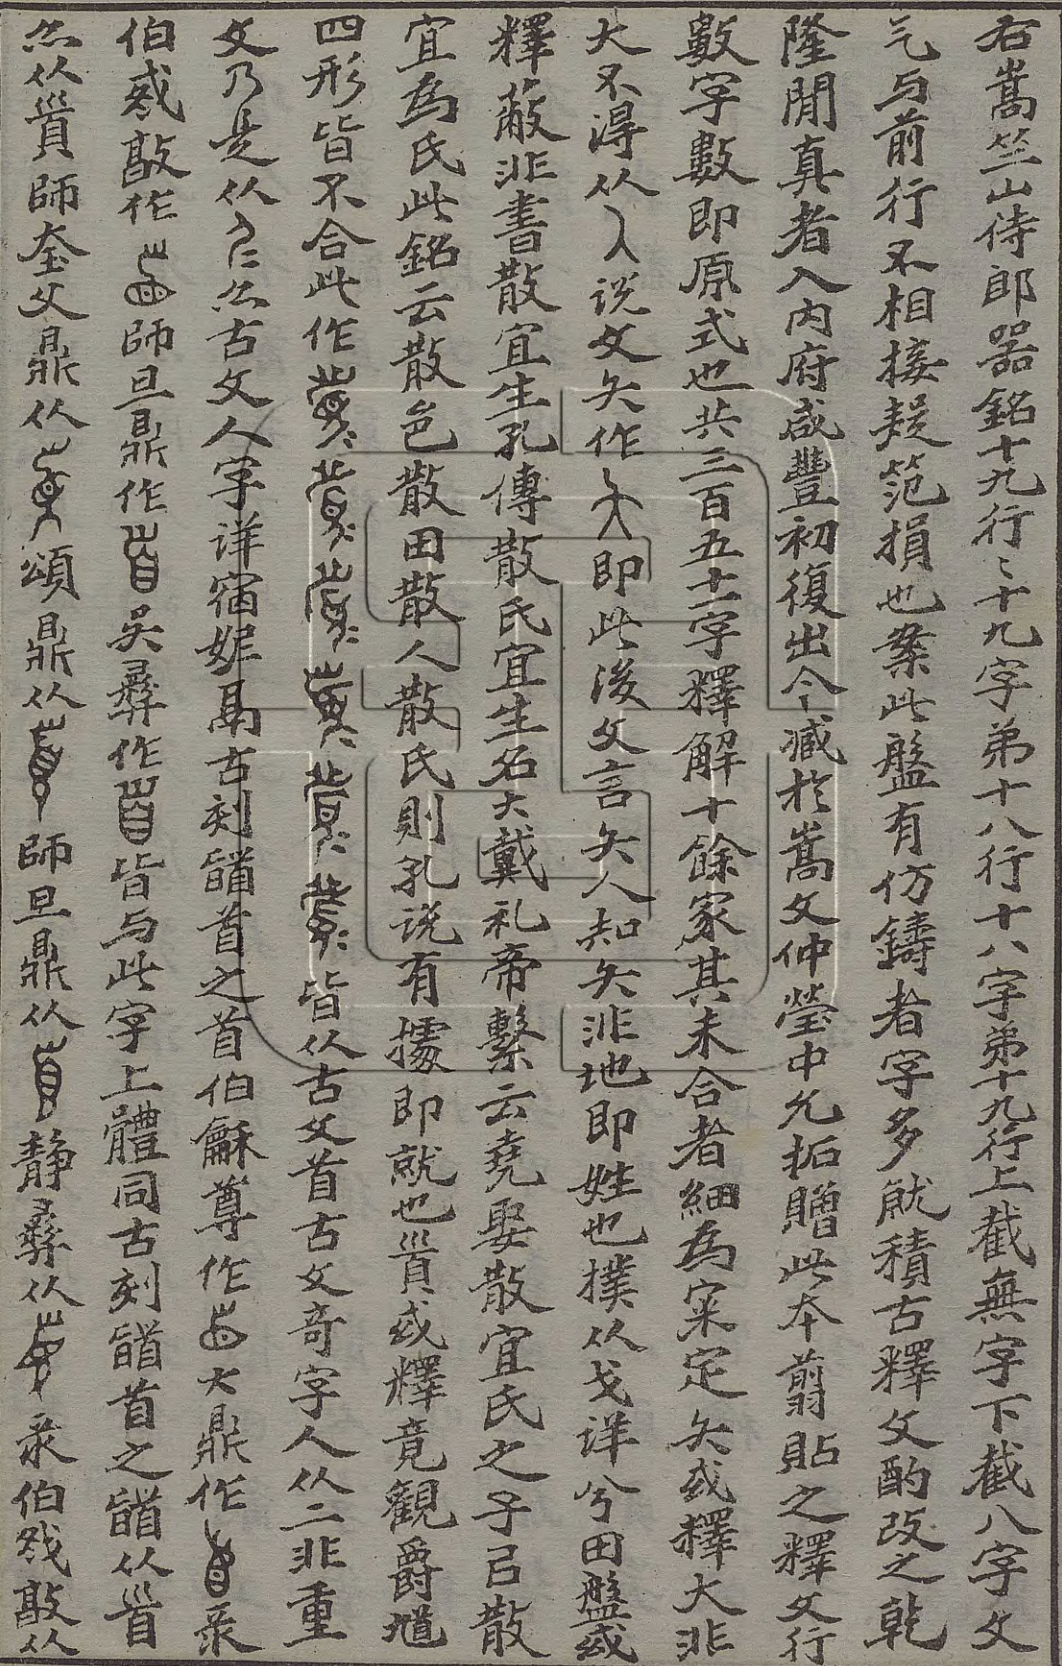 右嵩竺山侍郎器銘十九行〻十九字弟十八行十八字弟十九行上截無字下截八字文
气与前行不相接疑范損也案此盤有仿鑄者字多就積古釋文酌改之乾
隆閒真者入内府咸豐初復出今臧於嵩文仲瑩中允拓贈此本翦貼之釋文行
數字數即原式也共三百五十一字釋解十餘家其未合者細為宷定矢或釋大非
大不得从説文矢作即此後文言矢人知矢非地即姓也撲从戈详兮田盤或
釋蔽非書散宜生孔傳散氏宜生名大戴礼帝繫云堯娶散宜氏之子㠯散
宜為氏此銘云散邑散田散人散氏則孔说有據即就也䝨或釋竟觀爵馗
四形皆不合此作皆从古文首古文奇字人从二非重
文乃是从仁尒古文人字详宿妮鬲古刻䭫首之首伯龢尊作大鼎作彔
伯㦰敢作師旦鼎作吴彝作皆与此字上體同古刻䭫首之䭫从𩠐
尒从䝨師奎父鼎从頌鼎从師旦鼎从静彝从彔伯㦰敢从